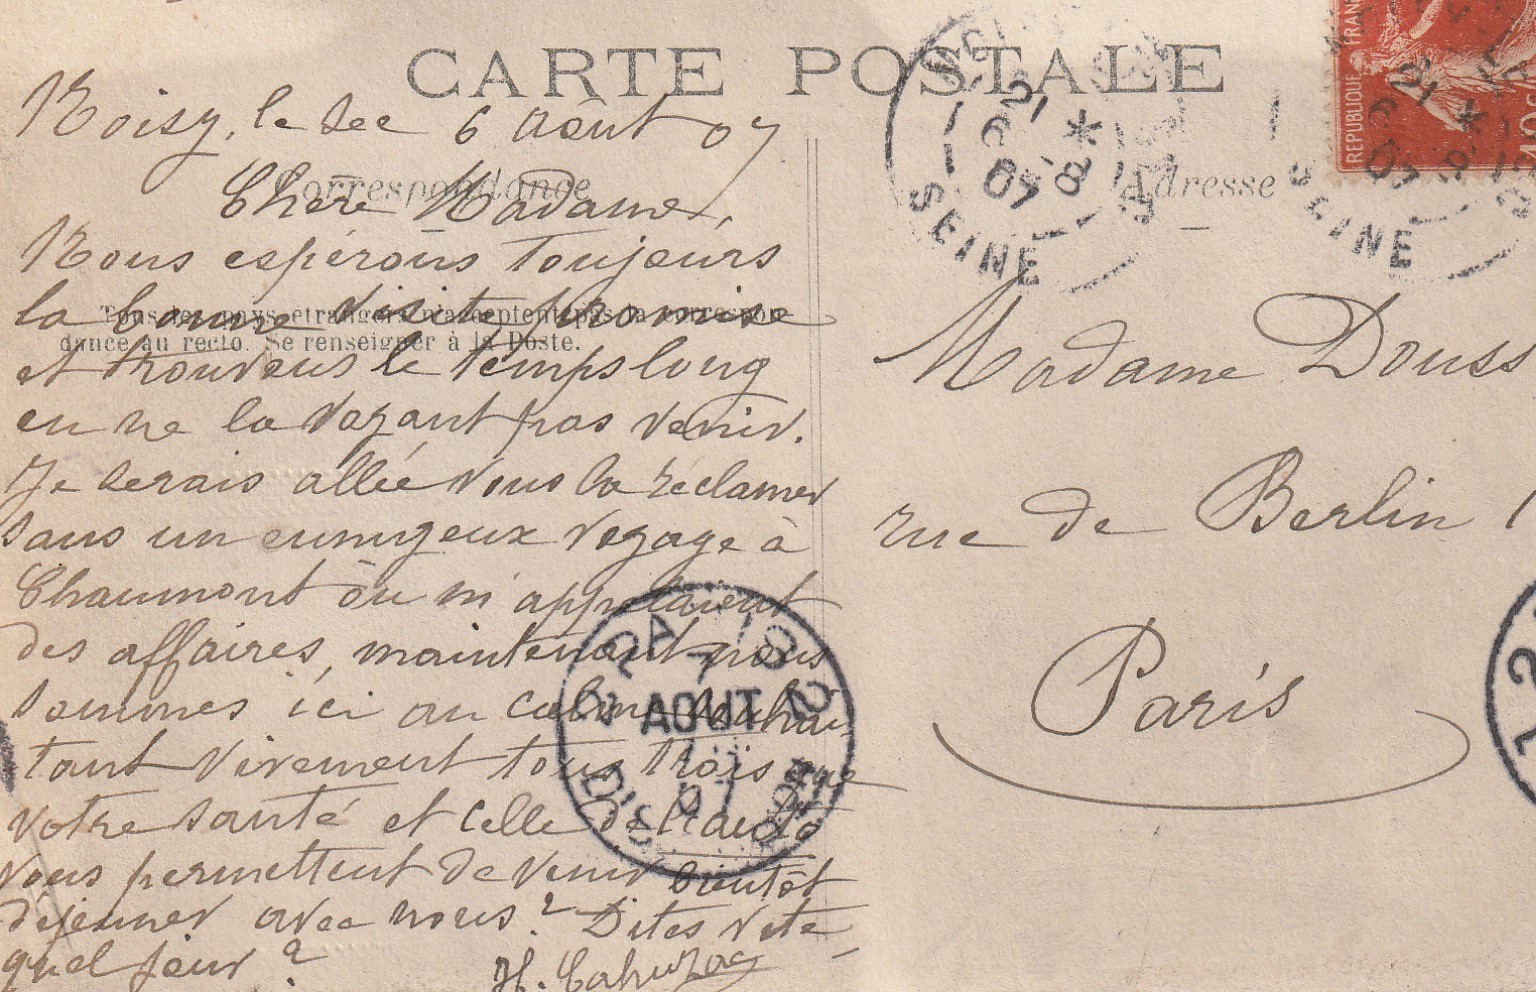 CARTE POSTALE
Correspondance
Adresse
Tous les pays etrangers n'acceptent pas la correspon-
dance au recto. Se renseigner à la Poste.
Noisy, le Sec 6 Août 07
Chère Madame,
Nous espérons toujours
la bonne visite promise
et trouvons le temps long
en ne la voyant pas venir.
Je serais allée vous la réclamer
sans un ennuyeux voyage à
Chaumont où m'appelaient
des affaires, maintenant nous
sommes ici au calme souhai
tant vivement tous trois que
votre santé et celle de
vous permettent de venir bientôt
déjeuner avec nous? Dites vite
quel jour?
H. Cahuzac
Madame Douss
rue de Berlin 1
Paris
REPUBLIQUE FRAN
10c
21 *
6 - 8
07
SEINE
21 *
6 - 8
07
SEINE
7
AOUT
07
DISTRIBUTION
12